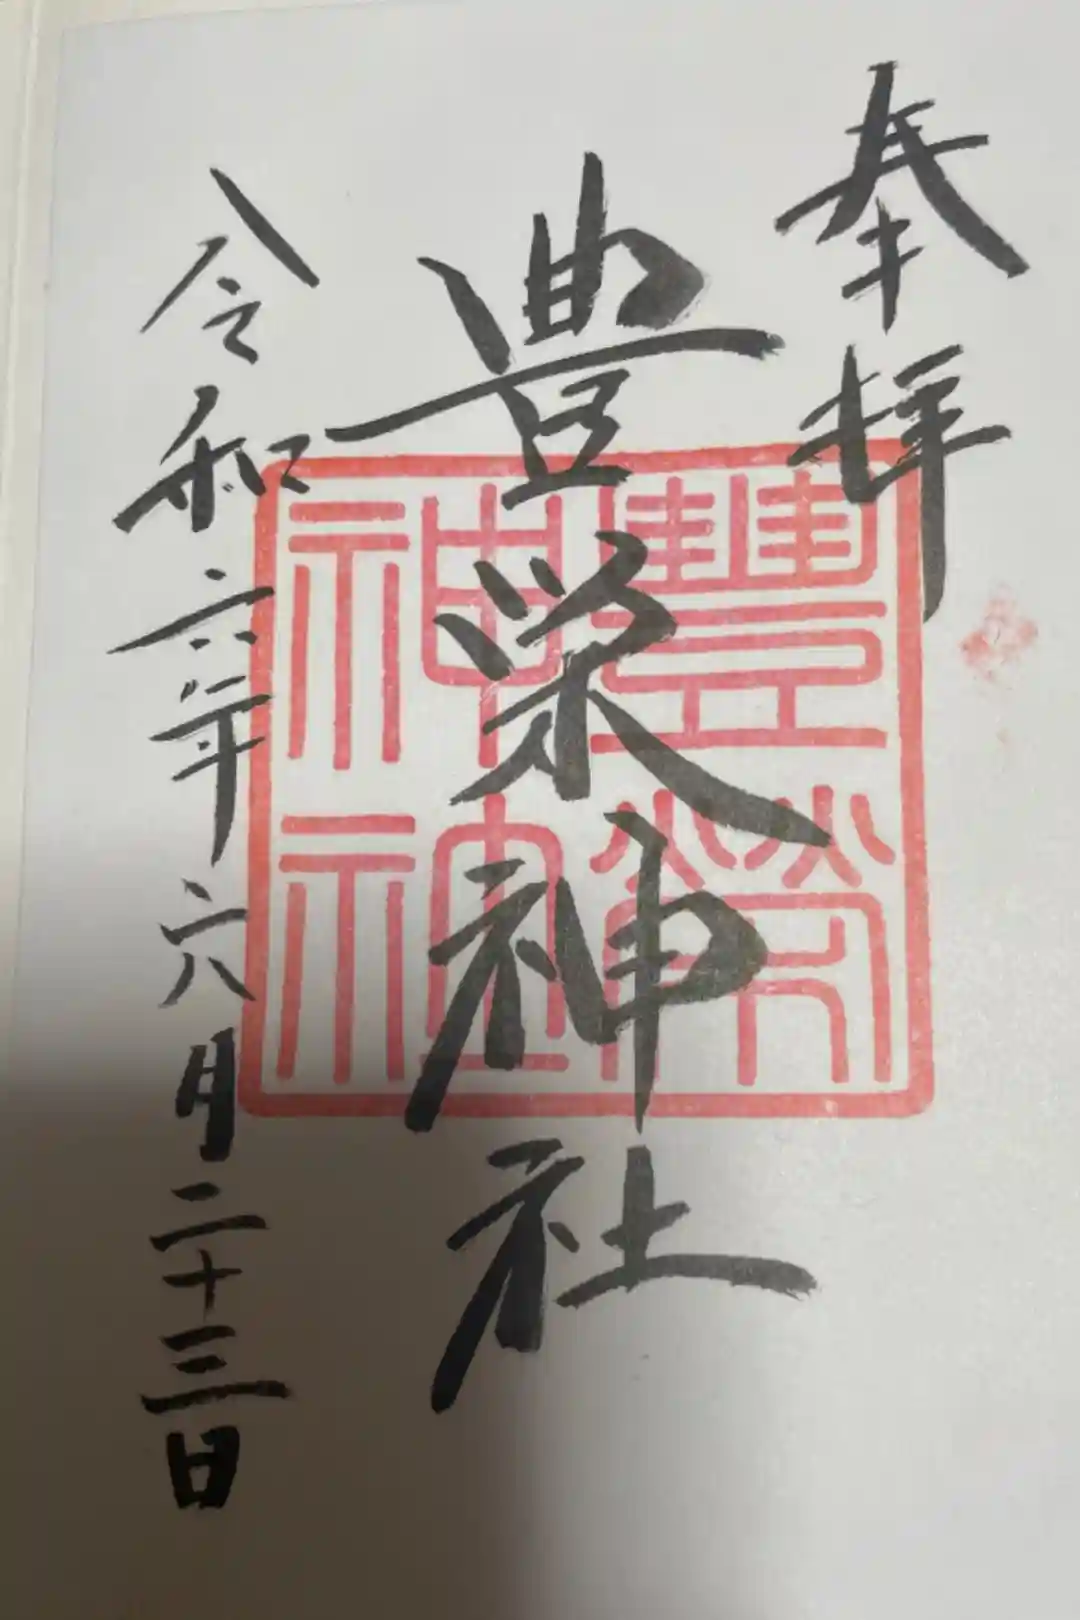 奉拝
豊栄神社
豐榮神社
令和六年六月二十三日